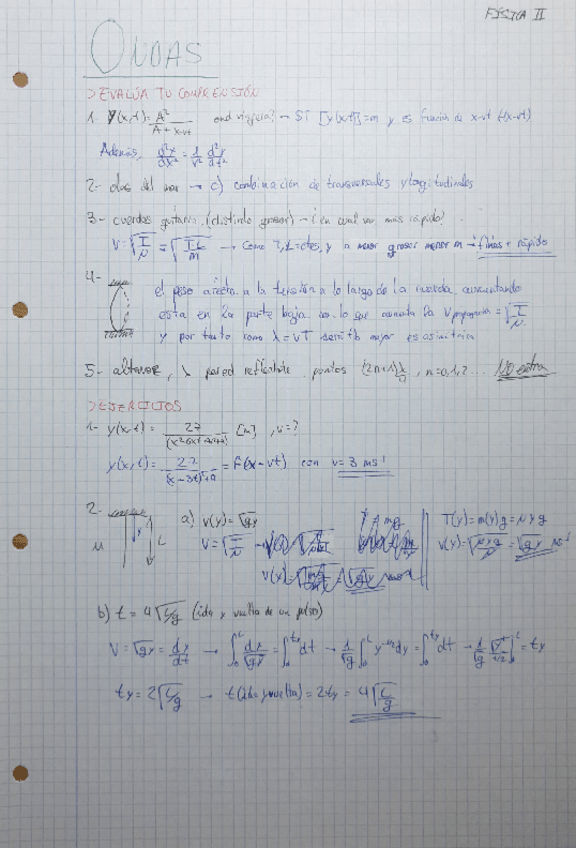 FÍSICA II
ONDAS
> EVALÚA TU COMPRENSIÓN
1- y(x,t) = A²/(A + x-vt) onda viajera? → SÍ [y(x,t)] = m y es función de x-vt f(x-vt)
Además, d²y/dx² = 1/v² d²y/dt²
2- olas del mar → c) combinación de transversales y longitudinales
3- cuerdas guitarra (distinto grosor) → ¿en cual va más rápido?
v = √(T/μ) = √(TL/m) → como T, L = ctes, y a menor grosor menor m → finas + rápido
4- el peso afecta a la tensión a lo largo de la cuerda, aumentando
esta en la parte                          v propagación = √(T/μ)
y por tanto como λ = vT                          mayor es
5- altavoz, λ pared reflectante, puntos (2n+1) λ/4, n=0,1,2... NO entra
> EJERCICIOS
1- y(x,t) = 27/                          [m], v=?
y(x,t) = 27/                          = F(x-vt) con v = 3 ms⁻¹
2- μ y L a) v(y) = √gy
v = √(T/μ)
T(y) = m(y)g = μyg
v(y) = √(μyg/μ) = √gy ms⁻¹
b) t = 4√(L/g) (ida y vuelta de un pulso)
v = √gy = dy/dt → ∫₀ᴸ dy/√gy = ∫₀^ty dt → 1/√g ∫₀ᴸ y^-1/2 dy = ∫₀^ty dt → 1/√g √y/(1/2) |₀ᴸ = ty
ty = 2√(L/g) → t(ida y vuelta) = 2ty = 4√(L/g)